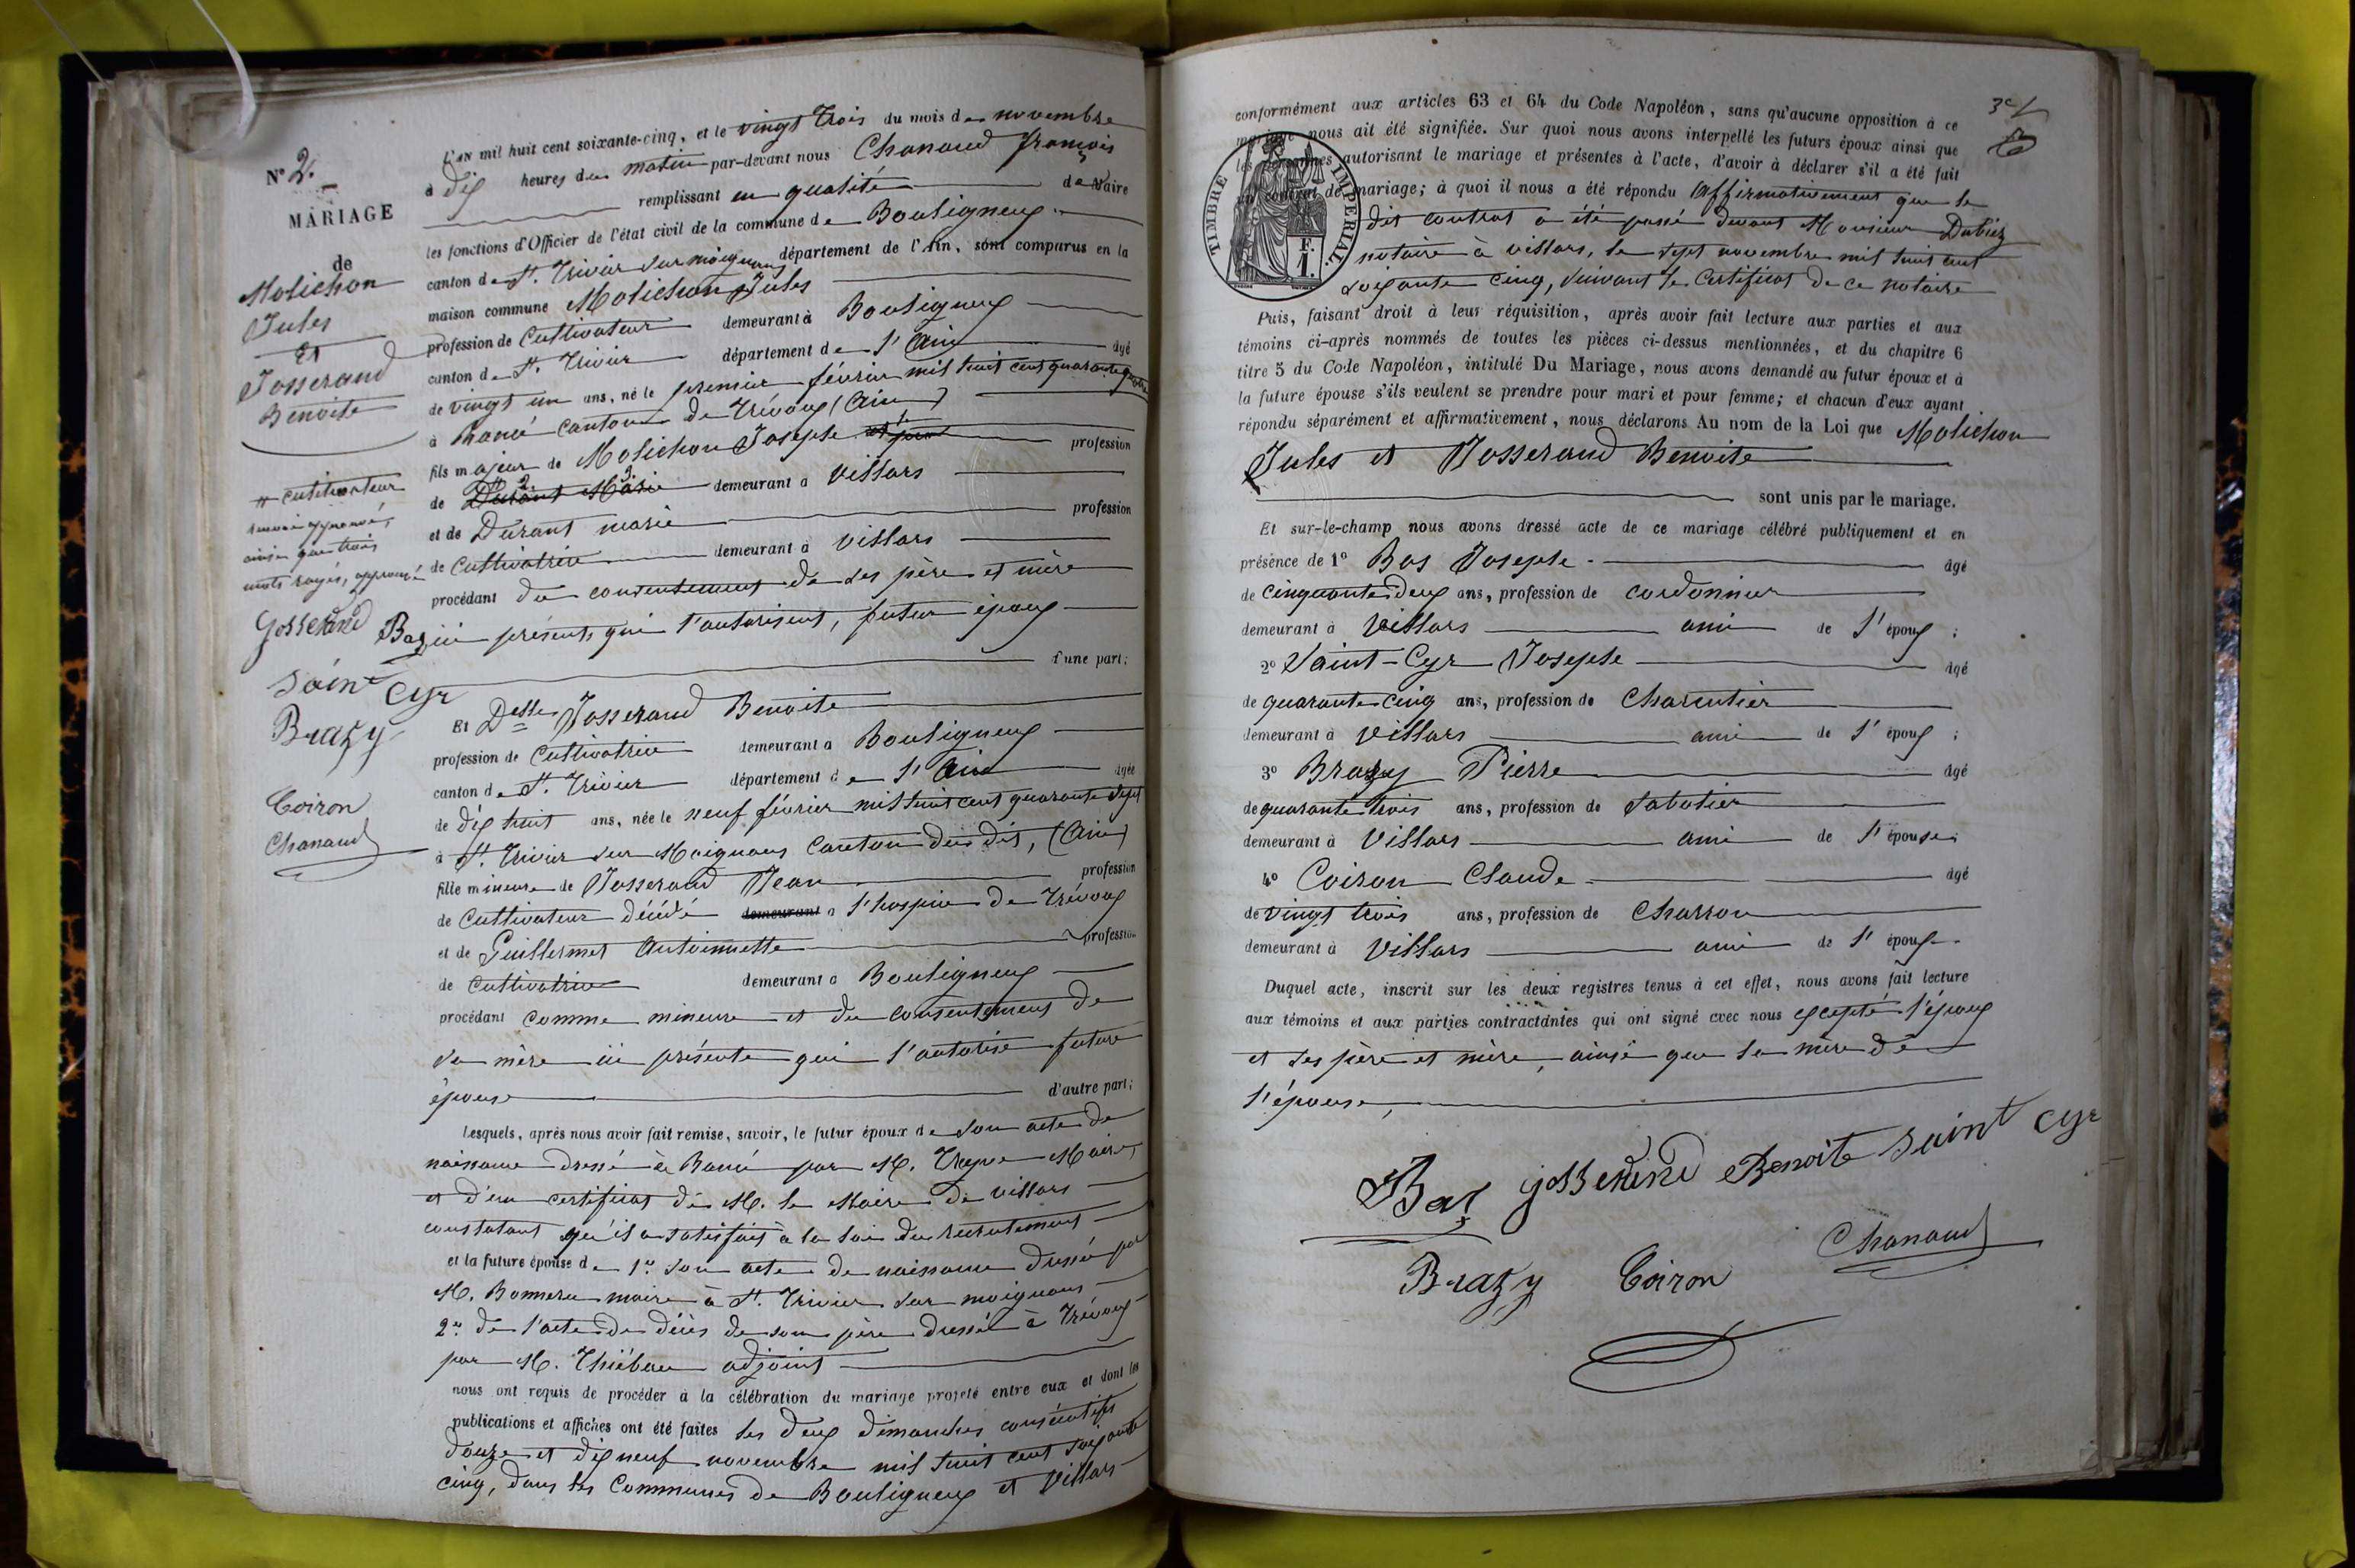 N° 2.
MARIAGE
de
Molichon
Jules
Et
Josserand
Benoite
# cultivateur
renvoi approuvé,
ainsi que trois
mots rayés, approuvé
Josserand Bas
Saint Cyr
Brazy
Coiron
Chanaud
L'AN mil huit cent soixante-cinq, et le vingt trois du mois de novembre
à dix heures du matin par-devant nous Chanaud françois
remplissant en qualité de Maire
les fonctions d'Officier de l'état civil de la commune de Bouligneux
canton de St. Trivier sur moignans département de l'Ain, sont comparus en la
maison commune Molichon Jules
profession de Cultivateur demeurant à Bouligneux
canton de St. Trivier département de l'Ain âgé
de vingt un ans, né le premier février mil huit cent quarante quatre
à Rancé canton de Trévoux (Ain)
fils majeur de Molichon Joseph profession
de Durant Marie demeurant à Villars
et de Durant marie profession
de Cultivatrice demeurant à Villars
procédant du consentement de ses père et mère
ici présents qui l'autorisent, futur époux
d'une part;
Et Delle Josserand Benoite
profession de Cultivatrice demeurant à Bouligneux
canton de St. Trivier département de l'Ain âgée
de dix huit ans, née le neuf février mil huit cent quarante sept
à St. Trivier sur Moignans Canton du dit, (Ain)
fille mineure de Josserand Jean profession
de Cultivateur décédé demeurant à l'hospice de Trévoux
et de Guillermet Antoinnette profession
de Cultivatrice demeurant à Bouligneux
procédant comme mineure et du consentement de
sa mère ici présente qui l'autorise future
épouse d'autre part;
Lesquels, après nous avoir fait remise, savoir, le futur époux de son acte de
naissance dressé à Rancé par M. Maire,
et d'un certificat de M. le Maire de Villars
constatant qu'il a satisfait à la loi du recrutement
et la future épouse de 1° son acte de naissance dressé par
M. maire à St. Trivier sur moignans
2° de l'acte de décès de son père dressé à Trévoux
par M. Thiébau adjoint
nous ont requis de procéder à la célébration du mariage projeté entre eux et dont les
publications et affiches ont été faites les deux dimanches consécutifs
douze et dix neuf novembre mil huit cent soixante
cinq, dans les Communes de Bouligneux et Villars
conformément aux articles 63 et 64 du Code Napoléon, sans qu'aucune opposition à ce
mariage nous ait été signifiée. Sur quoi nous avons interpellé les futurs époux ainsi que
les personnes autorisant le mariage et présentes à l'acte, d'avoir à déclarer s'il a été fait
un contrat de mariage; à quoi il nous a été répondu affirmativement que le
dit contrat a été passé devant Monsieur Dubiez
notaire à villars, le sept novembre mil huit cent
soixante cinq, suivant le Certificat de ce notaire
TIMBRE IMPERIAL.
F.
1.
Puis, faisant droit à leur réquisition, après avoir fait lecture aux parties et aux
témoins ci-après nommés de toutes les pièces ci-dessus mentionnées, et du chapitre 6
titre 5 du Code Napoléon, intitulé Du Mariage, nous avons demandé au futur époux et à
la future épouse s'ils veulent se prendre pour mari et pour femme; et chacun d'eux ayant
répondu séparément et affirmativement, nous déclarons Au nom de la Loi que Molichon
Jules et Josserand Benoite
sont unis par le mariage.
Et sur-le-champ nous avons dressé acte de ce mariage célébré publiquement et en
présence de 1° Bas Joseph âgé
de Cinquante deux ans, profession de cordonnier
demeurant à Villars ami de l'époux ;
2° Saint-Cyr Joseph âgé
de quarante cinq ans, profession de Charcutier
demeurant à Villars ami de l'époux ;
3° Brazy Pierre âgé
de quarante trois ans, profession de Sabotier
demeurant à Villars ami de l'épouse;
4° Coiron Claude âgé
de vingt trois ans, profession de Charron
demeurant à Villars ami de l'époux.
Duquel acte, inscrit sur les deux registres tenus à cet effet, nous avons fait lecture
aux témoins et aux parties contractantes qui ont signé avec nous excepté l'époux
et ses père et mère, ainsi que la mère de
l'épouse,
Bas Josserand Benoite Saint Cyr
Chanaud
Brazy Coiron